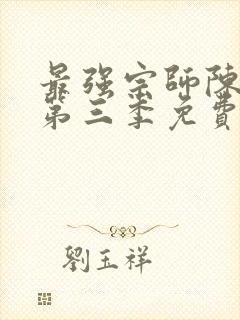 最强宗師陳
第三季免費
劉玉祥